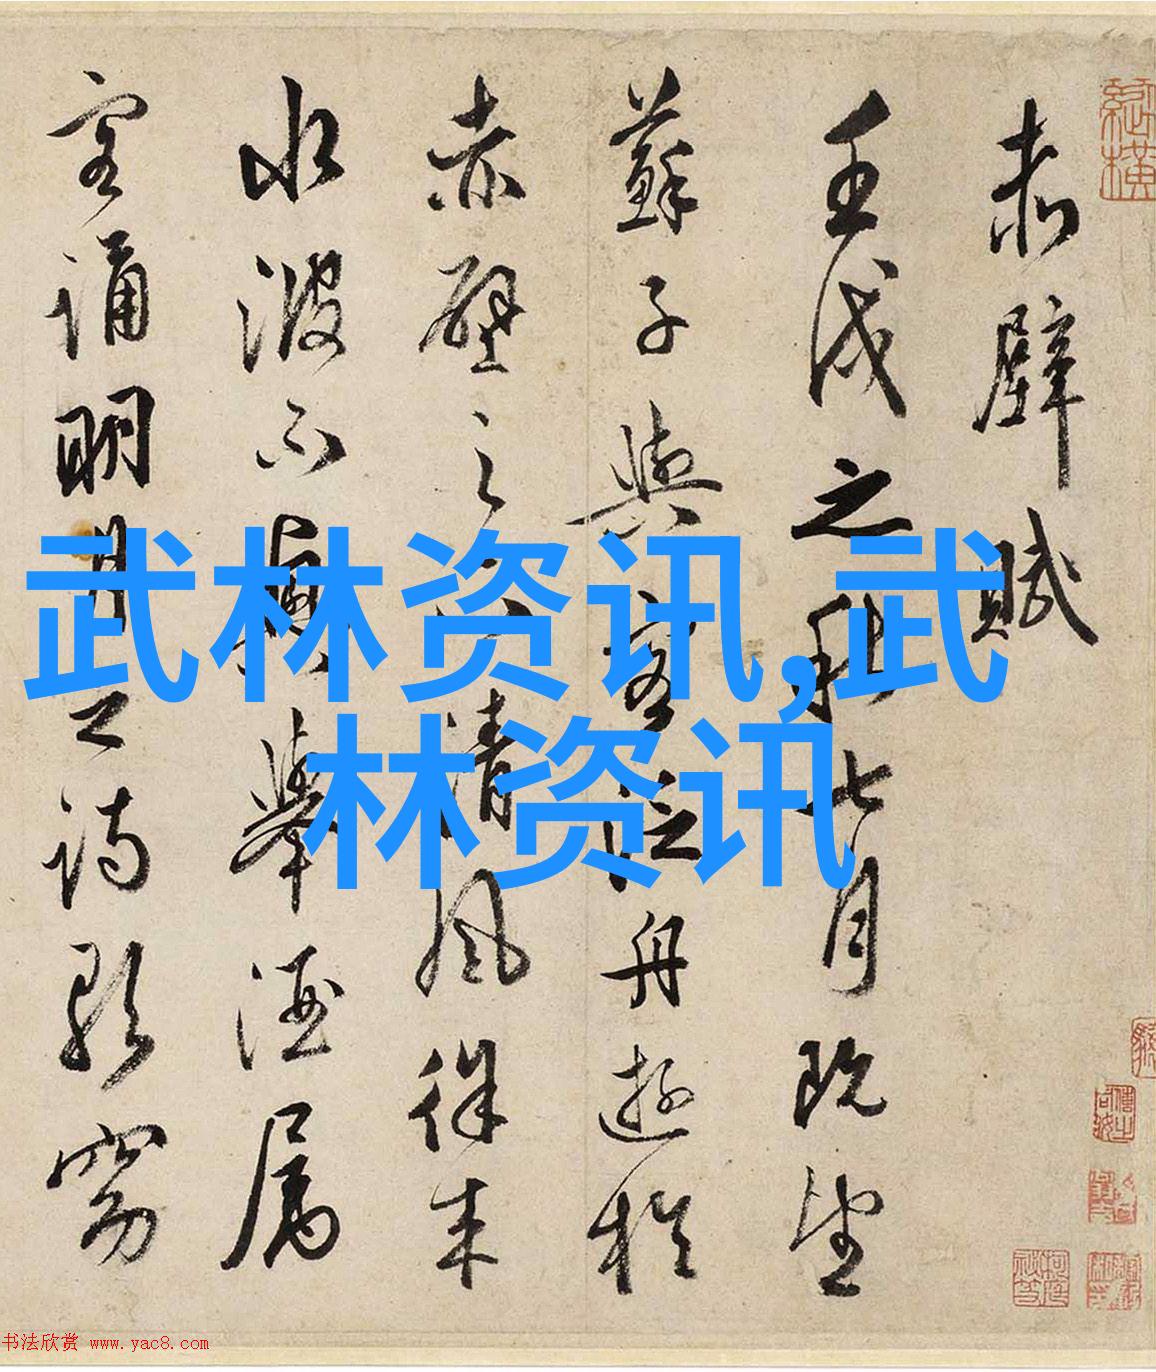 赤壁賦
壬戌之秋七月既望
蘇子與客泛舟遊於
赤壁之下清風徐來
水波不興舉酒屬
客誦明月之詩歌窈
武林资讯,武
林资讯
书法欣赏 www.yac8.com